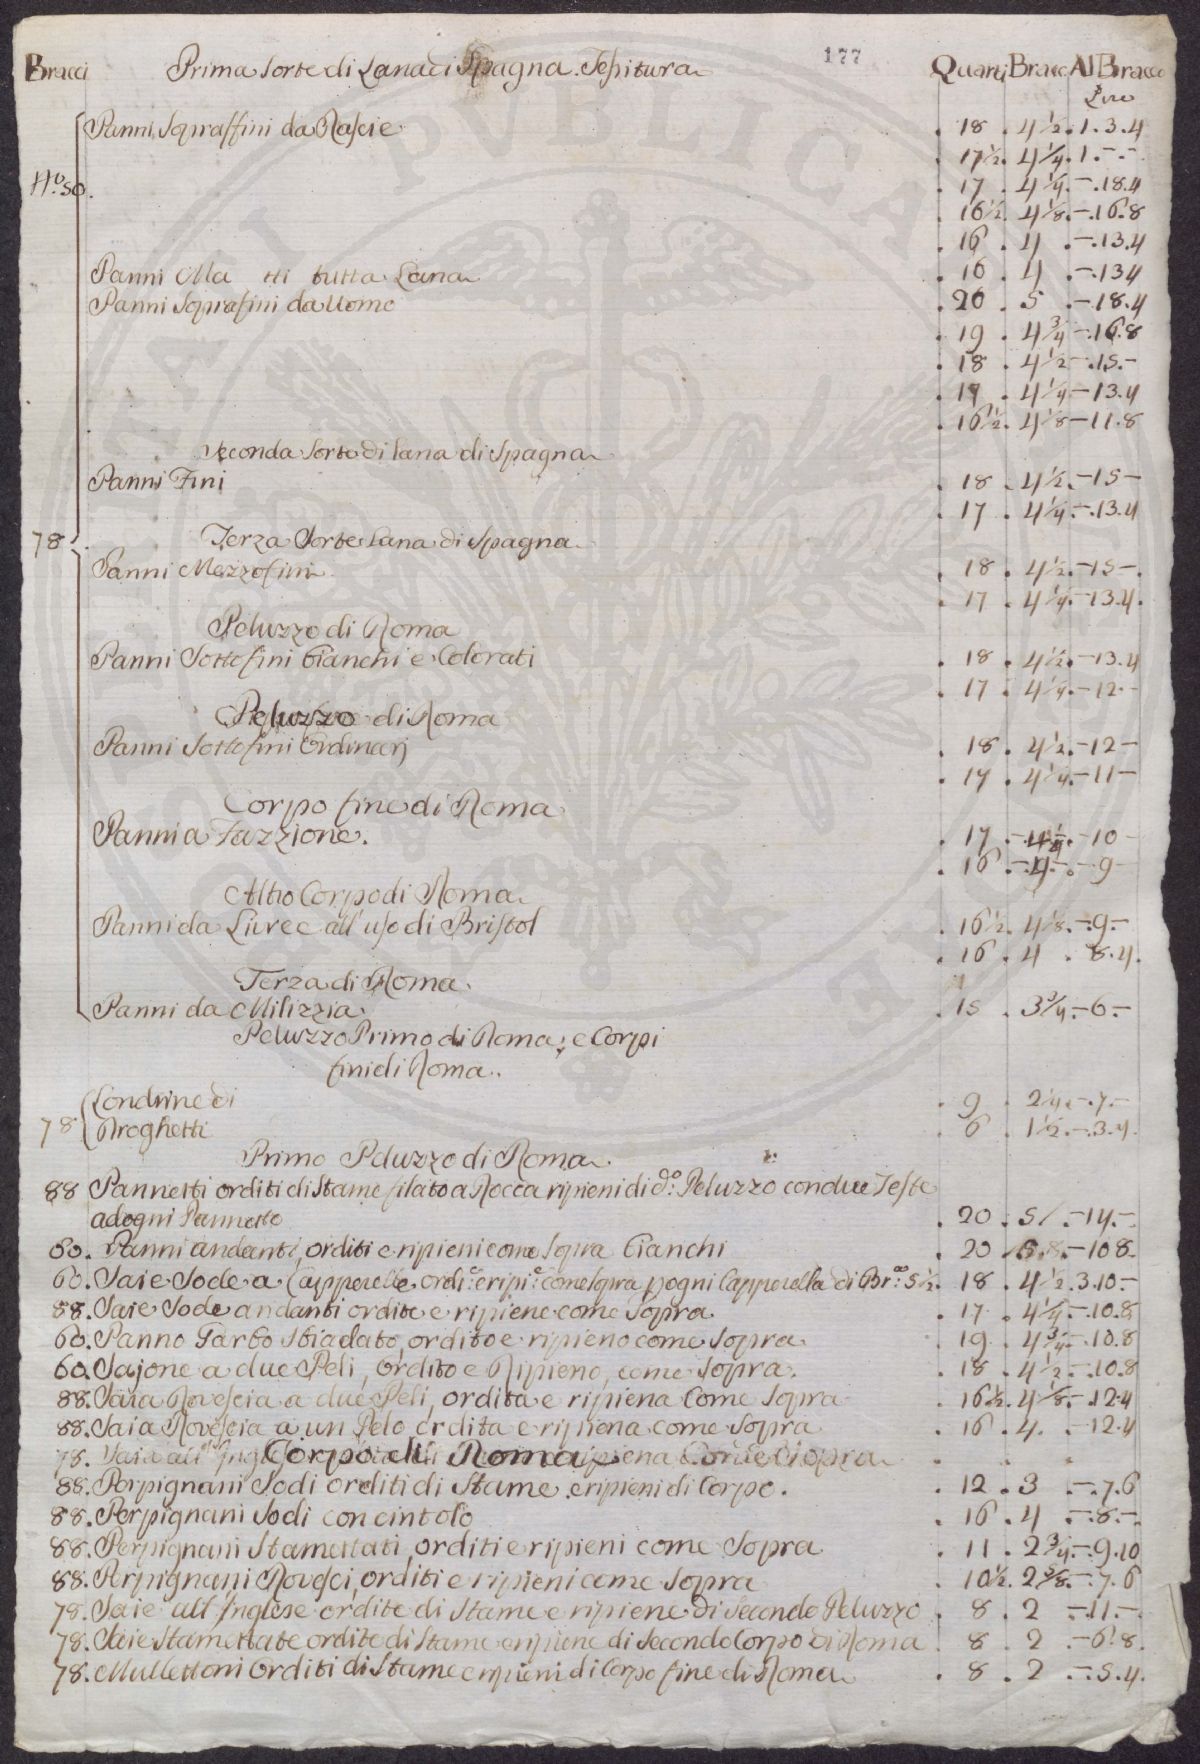 177
Bracci Prima Sorte di Lana di Spagna. Tessitura Quarti Bracc Al Bracco
Lire
Panni Sopraffini da Rascie . 18 . 4 1/2 . 1 . 3 . 4
. 17 1/2 . 4 1/4 . 1 . - . -
. 17 . 4 1/4 . - . 18.4
. 16 1/2 . 4 1/8 . - . 16.8
. 16 . 4 . - . 13.4
Panni tti tutta Lana . 16 . 4 . - . 134
Panni Soprafini da Uomo . 20 . 5 . - 18.4
. 19 . 4 3/4 - . 16.8
. 18 . 4 1/2 - . 15 . -
. 17 . 4 1/4 - 13.4
. 16 1/2 . 4 1/8 - 11.8
Seconda Sorte di lana di Spagna
Panni Fini . 18 . 4 1/2 . - 15 -
. 17 . 4 1/4 . - . 13.4
78
Terza Sorte Lana di Spagna
Panni Mezzofini . 18 . 4 1/2 . - 15 - .
. 17 . 4 1/4 . - 13.4.
Peluzzo di Roma
Panni Sottofini bianchi e Colorati . 18 . 4 1/2 . - 13.4
. 17 . 4 1/4 . - 12 . -
Peluzzo di Roma
Panni Sottofini Ordinarj . 18 . 4 1/2 . - 12 -
. 17 . 4 1/4 . - 11 -
Corpo fine di Roma
Panni a Fazzione. . 17 . - 4 1/4 . - 10 -
. 16 . - 4 - . - 9 -
Altro Corpo di Roma
Panni da Livree all'uso di Bristol . 16 1/2 . 4 1/8 . - . 9 . -
. 16 . 4 . 8.4.
Terza di Roma.
Panni da Milizzia. . 15 . 3 3/4 . - 6 . -
Peluzzo Primo di Roma; e Corpi
fini di Roma.
Londrine di . 9 . 2 1/4 . - . 7 . -
78 Droghetti . 6 . 1 1/2 . - . 3.4.
Primo Peluzzo di Roma
88 Pannetti orditi di Stame filato a Rocca ripieni di do: Peluzzo con due Teste
ad ogni Pannetto . 20 . 5 / . - 14 . -
60. Panni andanti, orditi e ripieni come Sopra bianchi . 20 . - 10 8.
60. Saie Sode a Capperelle ordi:e e ripi:e come sopra p ogni Capperella di Br:a 5 1/2. 18 . 4 1/2 . 3.10 -
88. Saie Sode andanti ordite e ripiene come Sopra . 17 . 4 1/4 - . 10.8
60. Panno Garbo Sbiadato, ordito e ripieno come Sopra . 19 . 4 3/4 - . 10.8
60. Sajone a due Peli, ordito e Ripieno, come Sopra. . 18 . 4 1/2 - . 10.8
88. Saia Rovescia a due Peli, ordita e ripiena Come Sopra . 16 1/2 . 4 1/8 . - 12.4
88. Saia Rovescia a un Pelo ordita e ripiena come Sopra . 16 . 4 . - 12.4
78. Corpo di Roma
88. Perpignani Sodi orditi di Stame e ripieni di Corpo. . 12 . 3 . - . 7.6
88. Perpignani Sodi con cintolo . 16 . 4 . - 8 . -
88. Perpignani Stamettati, orditi e ripieni come Sopra . 11 . 2 3/4 . - . 9.10
88. Perpignani Rovesci, orditi e ripieni come Sopra . 10 1/2 . 2 5/8 . - . 7.6
78. Saie all'Inglese ordite di Stame e ripiene di Secondo Peluzzo . 8 . 2 - 11 . -
78. Saie Stamettate ordite di Stame e ripiene di Secondo Corpo di Roma . 8 . 2 . - 6.8.
78. Mullettoni Orditi di Stame e ripieni di Corpo fine di Roma . 8 . 2 . - . 5.4.